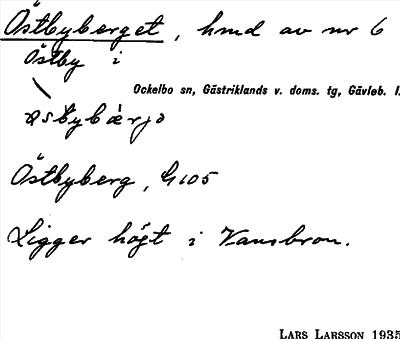 Östbyberget, hmd av nr 6
Östby i
Ockelbo sn, Gästriklands v. doms. tg, Gävleb. l.
Östbyberg, G 105
Ligger högt i Vansbron.
LARS LARSSON 1935